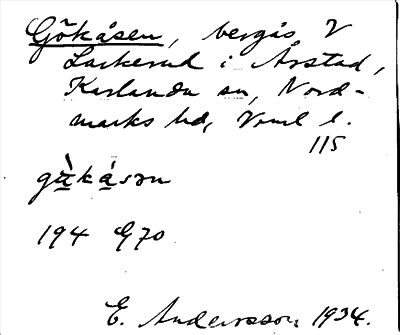 Gökåsen, bergås V
Larkerud i Årstad,
Karlanda sn, Nord-
marks hd, Vrml l.
115
gὰkásən
194 G70
E. Andersson 1934.